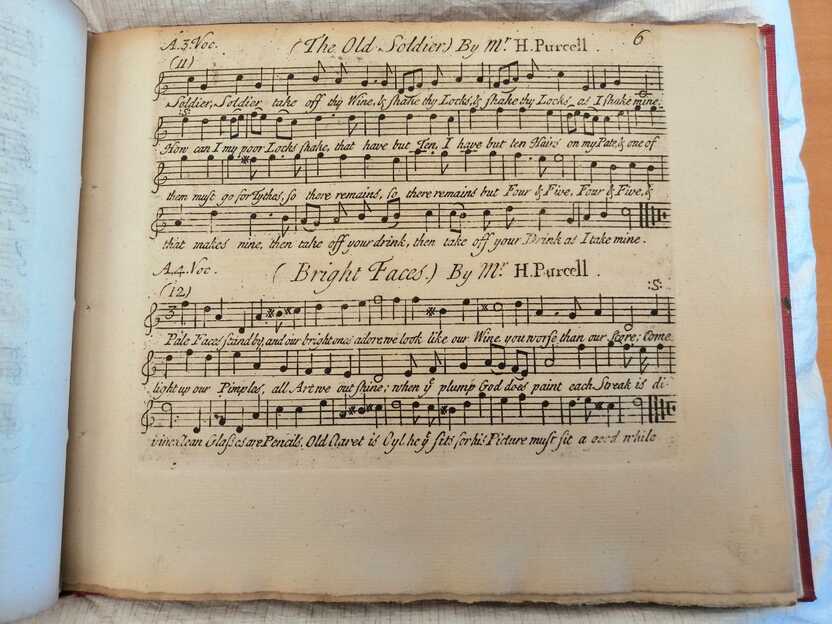 A.3.Voc. (The Old Soldier) By Mr. H.Purcell. 6
(11)
Soldier, Soldier take off thy Wine, & shake thy Locks, & shake thy Locks as I shake mine.
:S:
How can I my poor Locks shake, that have but Ten, I have but ten Hairs on my Pate, & one of
them must go for Tythes, so there remains, so there remains but Four & Five, Four & Five, &
that makes nine, then take off your drink, then take off your Drink as I take mine.
A.4.Voc. (Bright Faces.) By Mr. H.Purcell.
(12) :S:
3
Pale Faces stand by, and our bright ones adore we look like our Wine, you worse than our score; Come
light up our Pimples, all Art we out shine; when ye plump God does paint each Streak is di-
vine: Clean Glasses are Pencils, Old Claret is Oyl he yt sits for his Picture must sit a good while